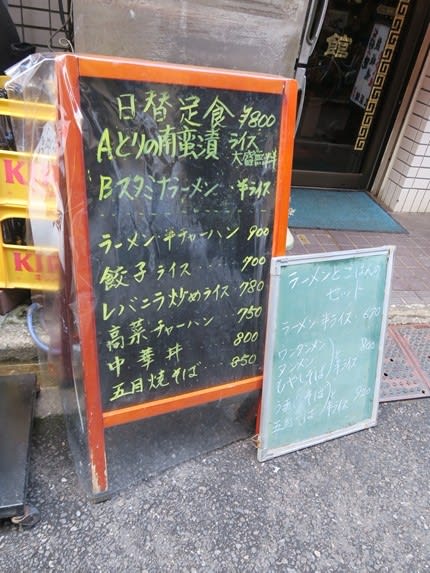 館
日替定食 ¥800
Aとりの南蛮漬 ライス
大盛無料
Bスタミナラーメン 半ライス
ラーメン・半チャーハン 900
餃子ライス 700
レバニラ炒めライス 780
高菜チャーハン 750
中華丼 800
五目焼そば 850
ラーメンとごはんの
セット
ラーメン・半ライス 670
ワンタンメン
タンメン
ひやしそば
半ライス 800
そば
五目そば
半ライス 950
KI
KI